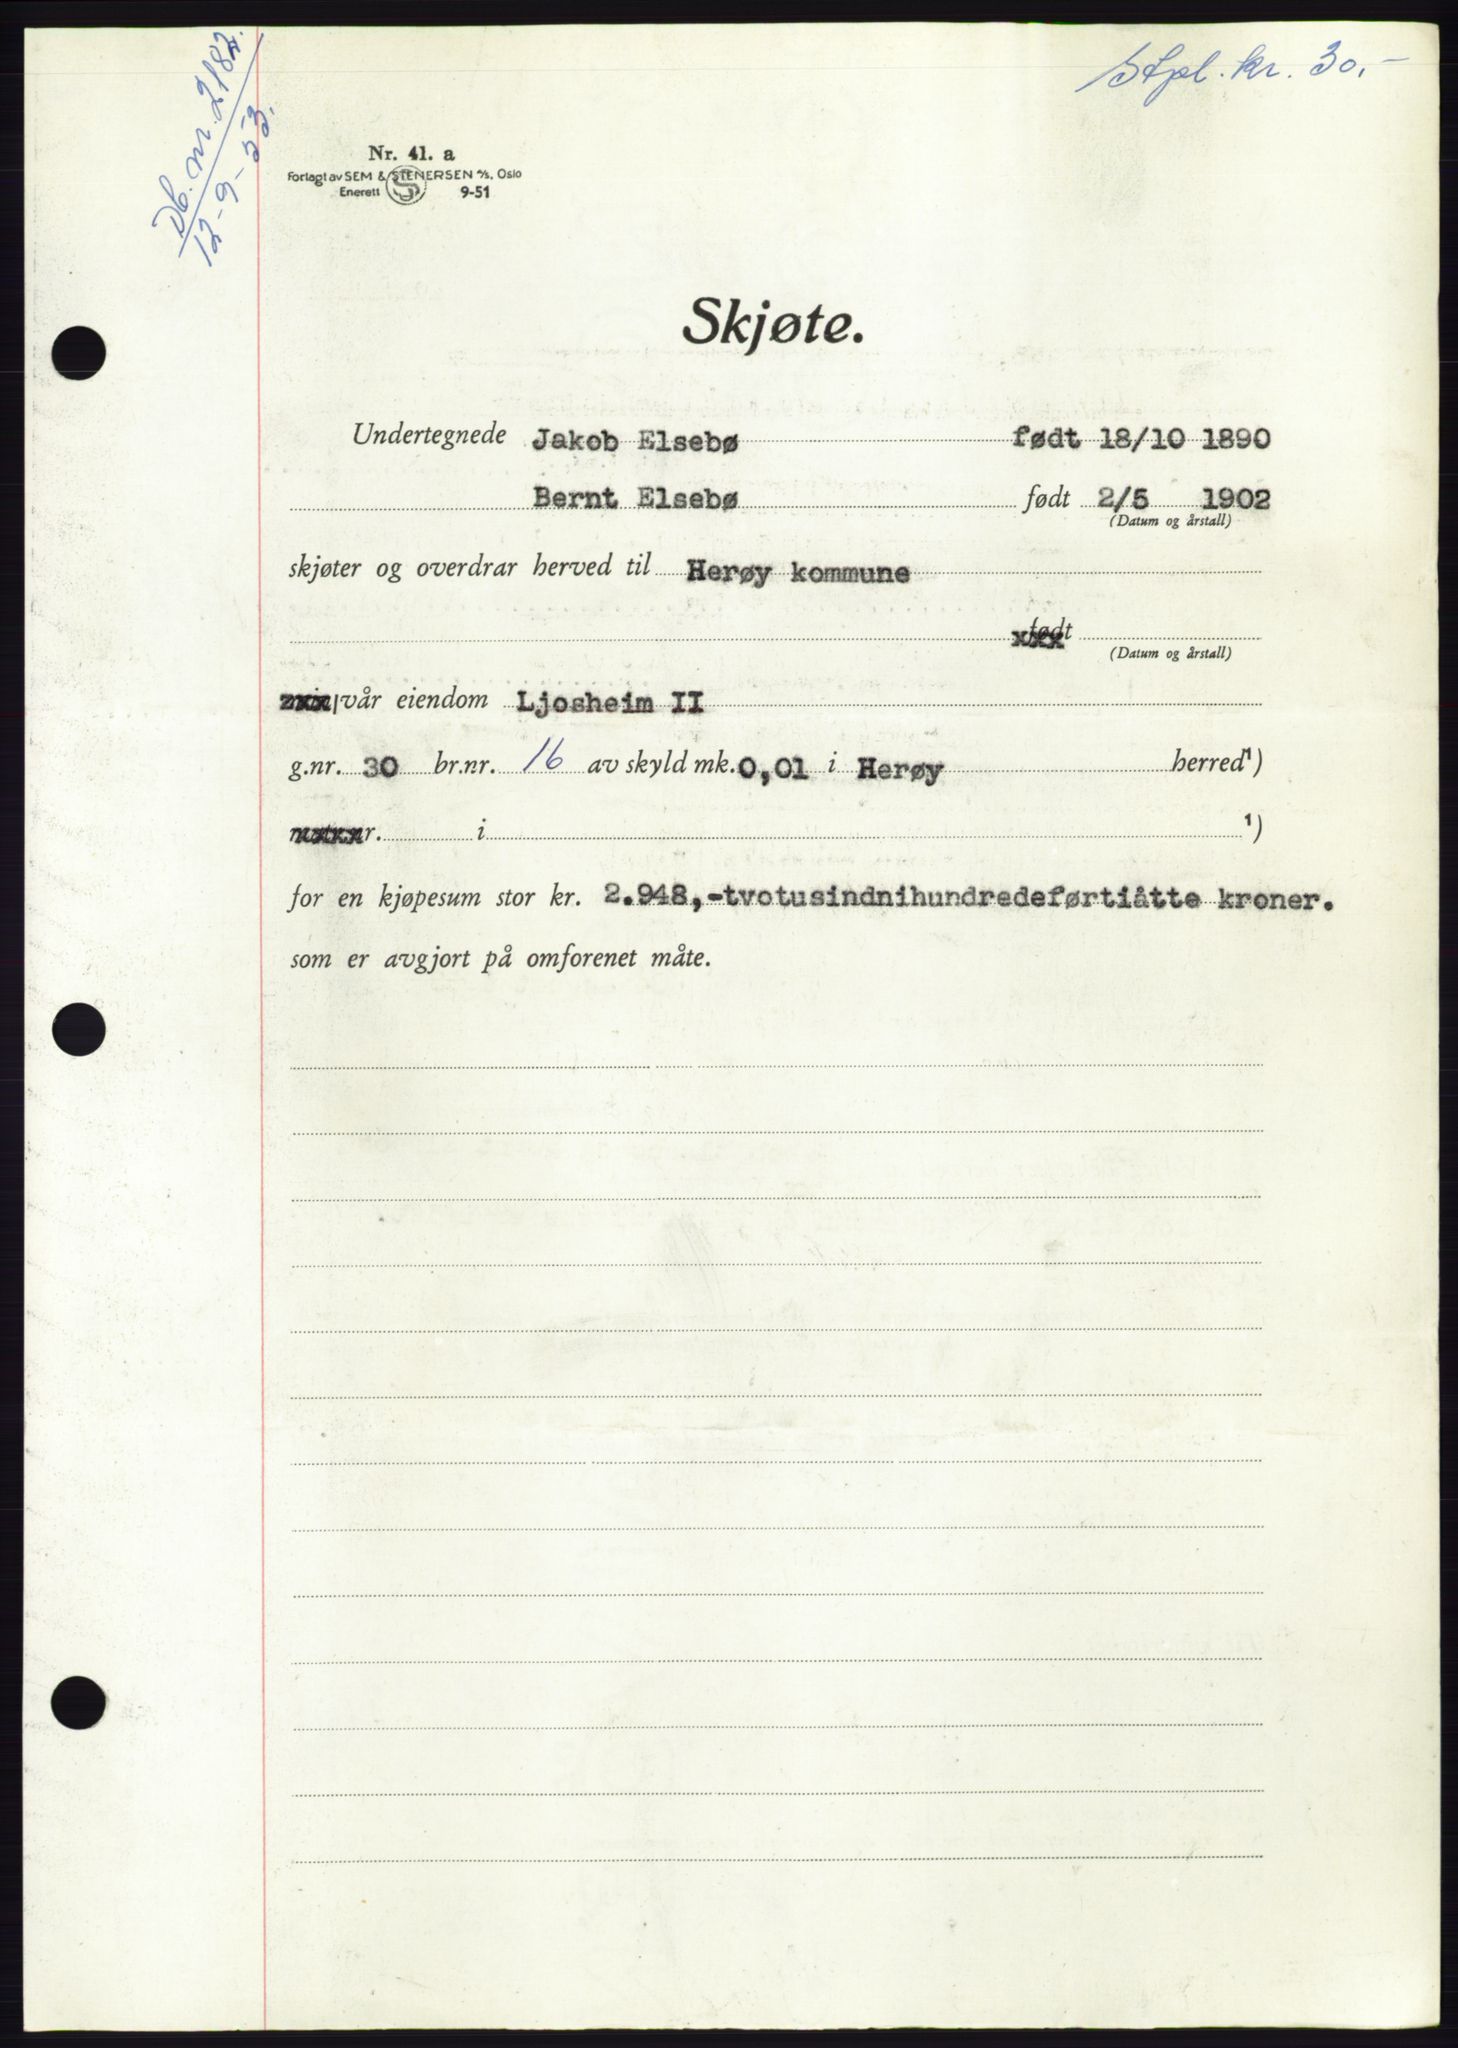 Stpl. kr. 30.-
Db. nr. 2182.
12-9-53.
Nr. 41. a
Forlagt av SEM & STENERSEN A/S, Oslo
Enerett S 9-51
Skjøte.
Undertegnede Jakob Elsebø født 18/10 1890
Bernt Elsebø født 2/5 1902
(Datum og årstall)
skjøter og overdrar herved til Herøy kommune
født
(Datum og årstall)
vår eiendom Ljosheim II
g.nr. 30 br.nr. 16 av skyld mk. 0,01 i Herøy herred ¹)
nr. i ¹)
for en kjøpesum stor kr. 2.948,-tvotusindnihundredeførtiåtte kroner.
som er avgjort på omforenet måte.